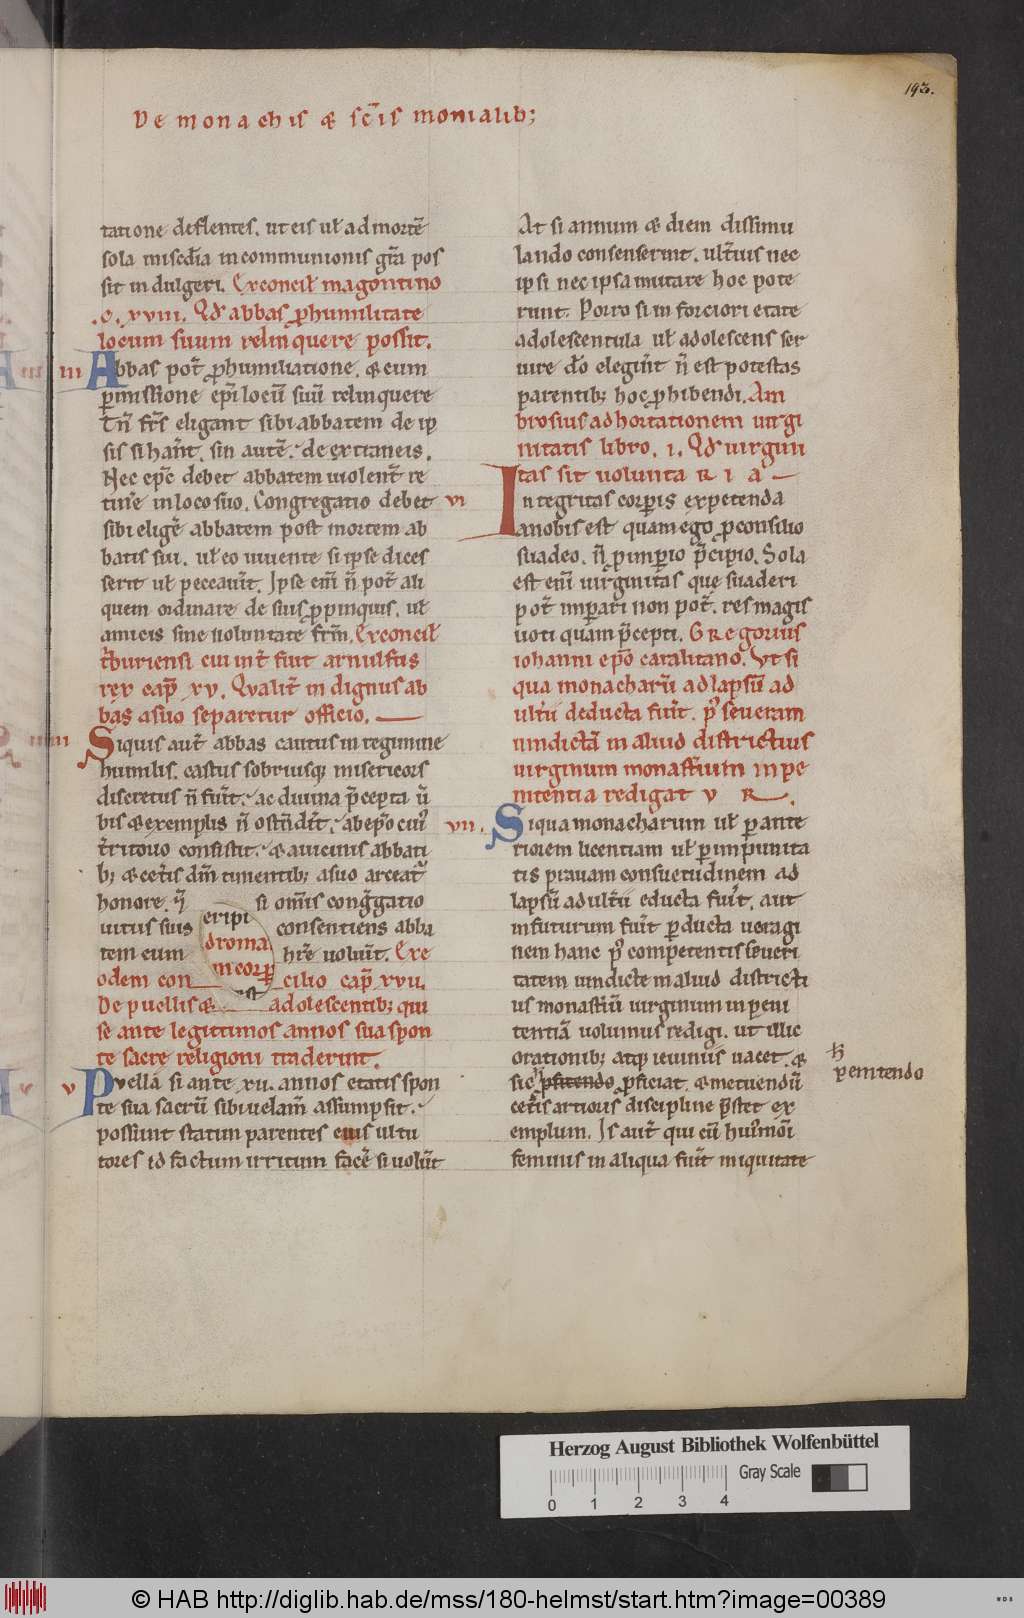 193.
De monachis & sc̄is monialib;
tatione deflentes. ut eis uł ad mortē
sola miscđia in communionis gr̄a pos
sit indulgeri. Ex concil̄ magontino
.c. xviii. Qđ abbas ꝑ humilitate
locum suum relinquere possit.
iii Abbas pot̄ ꝑ humiliatione. & cum
ꝑmissione ep̄i locū suū relinquere
t̄n fr̄s eligant sibi abbatem de ip
sis si hān̄t. sin autē. de extraneis.
Nec ep̄c debet abbatem uiolent̄ re
tin̄e in loco suo. Congregatio debet
sibi eliḡe abbatem post mortem ab
batis sui. uł eo uiuente si ipse disces
serit uł peccauit̄. Ipse em̄ n̄ pot̄ ali
quem ordinare de suis ꝓpinquis. uł
amicis sine uoluntate fr̄m. Ex concil̄
t̄buriensi cui int̄fuit arnulfus
rex cap̄ xv. Qualit̄ indignus ab
bas a suo separetur officio.
iiii Siquis aut̄ abbas cautus in regimine
humilis. castus sobriusq; misericors
discretus n̄ fuit̄. ac diuina p̄cepta ū
bis & exemplis n̄ ostn̄dit̄. ab ep̄o cui᾿
t̄ritorio consistit. & a uicinis abbati
b; & cet̄is dm̄ timentib; a suo arceat᾿
honore. q̄ si om̄is cong̃gatio
uitus suis eripi consentiens abba
tem eum droma hr̄e uoluit̄. Exe
odem con in corꝑ cilio cap̄ xvii.
De puellis & est adolescentib; qui
se ante legittimos annos sua spon
te sacre religioni tradiderint.
v Puella si ante xii. annos etatis spon
te sua sacrū sibi uelam̄ assumpsit.
possunt statim parentes eius ul tu
tores id factum irritum facē si uolūt
At si annum & diem dissimu
lando consenserint. ult̄ius nec
ipsi nec ipsa mutare hoc pote
runt. Porro si in forciori etate
adolescentula uł adolescens ser
uire dō elegit̄ n̄ est potestas
parentib; hoc ꝓhibendi. Am
brosius ad hortationem uirgi
nitatis libro. i. Qđ uirgini
tas sit uolunta R i a
vi Integritas corꝑis expetenda
a nobis est quam ego ꝓ consilio
suadeo. n̄ ꝓ imꝑio p̄cipio. Sola
est em̄ uirginitas quę suaderi
pot̄ imꝑari non pot̄. res magis
uoti quam p̄cepti. GRegorius
iohanni ep̄o caralitano. Vt si
qua monacharū ad lapsū ad
ult̄ii deducta fuit̄. p᾿ seueram
uindictā in aliud districtius
uirginum monast̄ium in pe
nitentia redigat v R.
vii. Siqua monacharum uł ꝑ ante
riorem licentiam uł ꝑ impunita
tis prauam consuetudinem ad
lapsū adult̄ii educta fuit̄. aut
in futurum fuit̄ ꝑducta uoragi
nem hanc p᾿ competentis seueri
tatem uindicte in aliud districti
us monast̄iū uirginum in peni
tentiā uolumus redigi. ut illic
orationib; atq; ieiuniis uacet. &
sic ꝓfitendo ꝓficiat. & metuendū
cet̄is artioris discipline p̄stet ex
emplum. Is aut̄ qui cū hui᾿moī
feminis in aliqua fuit̄ iniquitate
penitendo
Herzog August Bibliothek Wolfenbüttel
Gray Scale
0 1 2 3 4
© HAB http://diglib.hab.de/mss/180-helmst/start.htm?image=00389